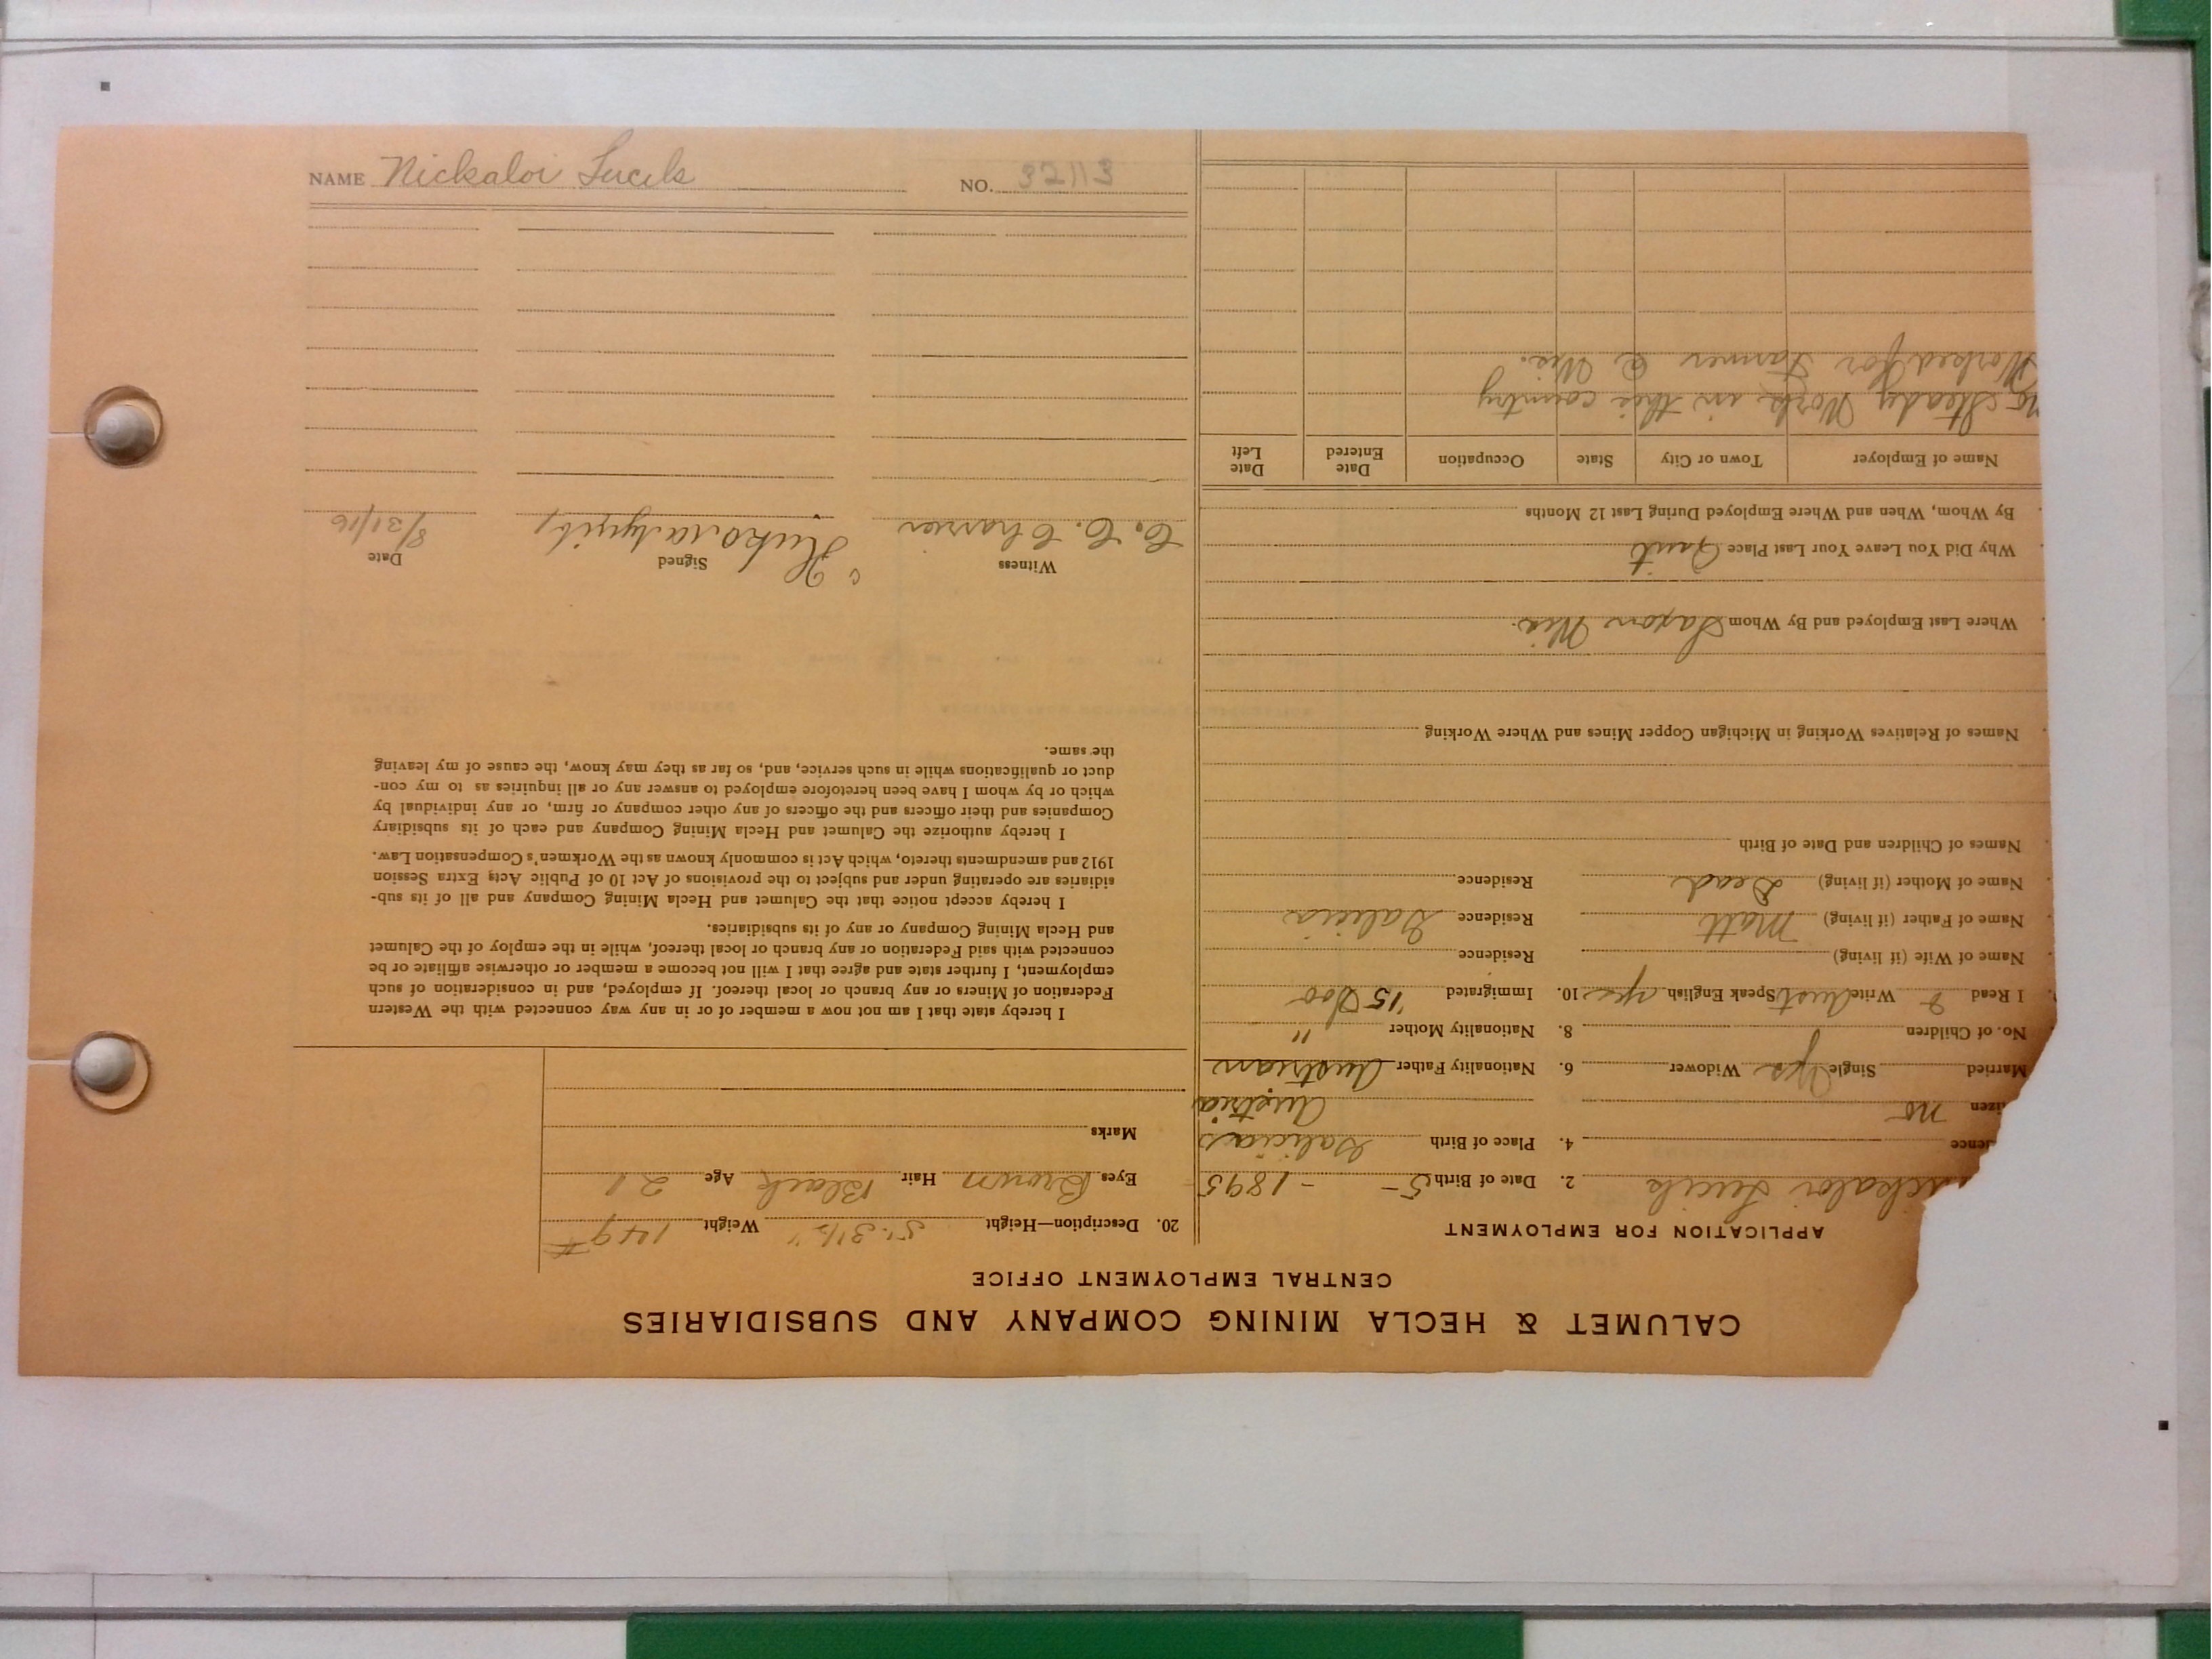 NAME Nickaloi Lucik NO. 32113
CALUMET & HECLA MINING COMPANY AND SUBSIDIARIES
CENTRAL EMPLOYMENT OFFICE
APPLICATION FOR EMPLOYMENT
ickaloi Lucik 2. Date of Birth 5- - 1895
ence 4. Place of Birth Galicia
izen no Austria
Married Single Yes Widower 6. Nationality Father Austrian
No. of Children 8. Nationality Mother "
I Read & Write Aust Speak English yes 10. Immigrated '15 Soo
Name of Wife (if living) Residence
Name of Father (if living) Matt Residence Galicia
Name of Mother (if living) Dead Residence
Names of Children and Date of Birth
Names of Relatives Working in Michigan Copper Mines and Where Working
Where Last Employed and By Whom Saxon Wis.
Why Did You Leave Your Last Place Quit
By Whom, When and Where Employed During Last 12 Months
Name of Employer Town or City State Occupation Date Entered Date Left
no steady Work in this country
Worked for Farmer @ Wis.
20. Description—Height 5'-3½" Weight 149#
Eyes Brown Hair Black Age 21
Marks
I hereby state that I am not now a member of or in any way connected with the Western
Federation of Miners or any branch or local thereof. If employed, and in consideration of such
employment, I further state and agree that I will not become a member or otherwise affiliate or be
connected with said Federation or any branch or local thereof, while in the employ of the Calumet
and Hecla Mining Company or any of its subsidiaries.
I hereby accept notice that the Calumet and Hecla Mining Company and all of its sub-
sidiaries are operating under and subject to the provisions of Act 10 of Public Acts Extra Session
1912 and amendments thereto, which Act is commonly known as the Workmen's Compensation Law.
I hereby authorize the Calumet and Hecla Mining Company and each of its subsidiary
Companies and their officers and the officers of any other company or firm, or any individual by
which or by whom I have been heretofore employed to answer any or all inquiries as to my con-
duct or qualifications while in such service, and, so far as they may know, the cause of my leaving
the same.
Witness Signed Date
C. C. Charrier 8/31/16